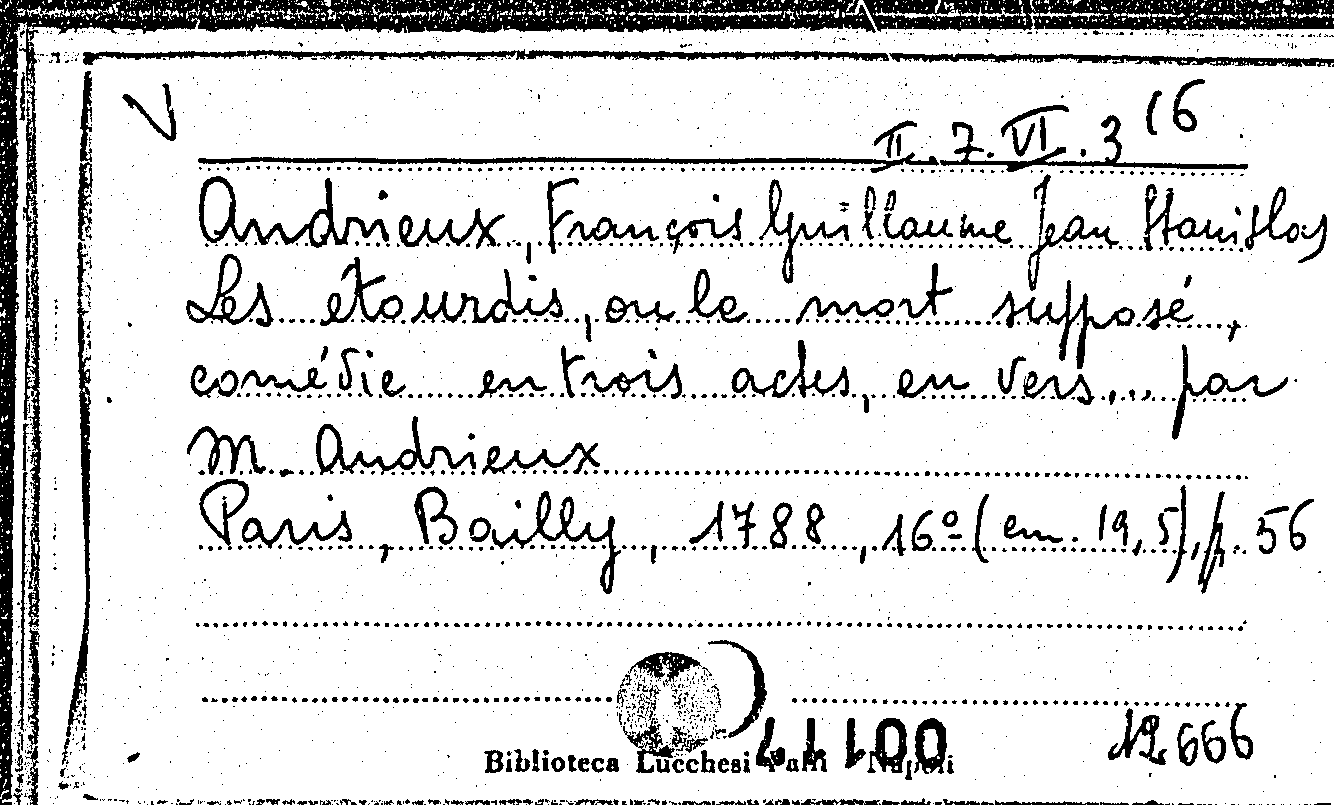 V
II. 7. VI. 3 16
Andrieux, François Guillaume Jean Stanislas
Les étourdis, ou le mort supposé,
comédie en trois actes, en vers... par
M. Andrieux
Paris, Bailly, 1788, 16º (cm. 19,5), p. 56
12666
Biblioteca Lucchesi Palli Napoli